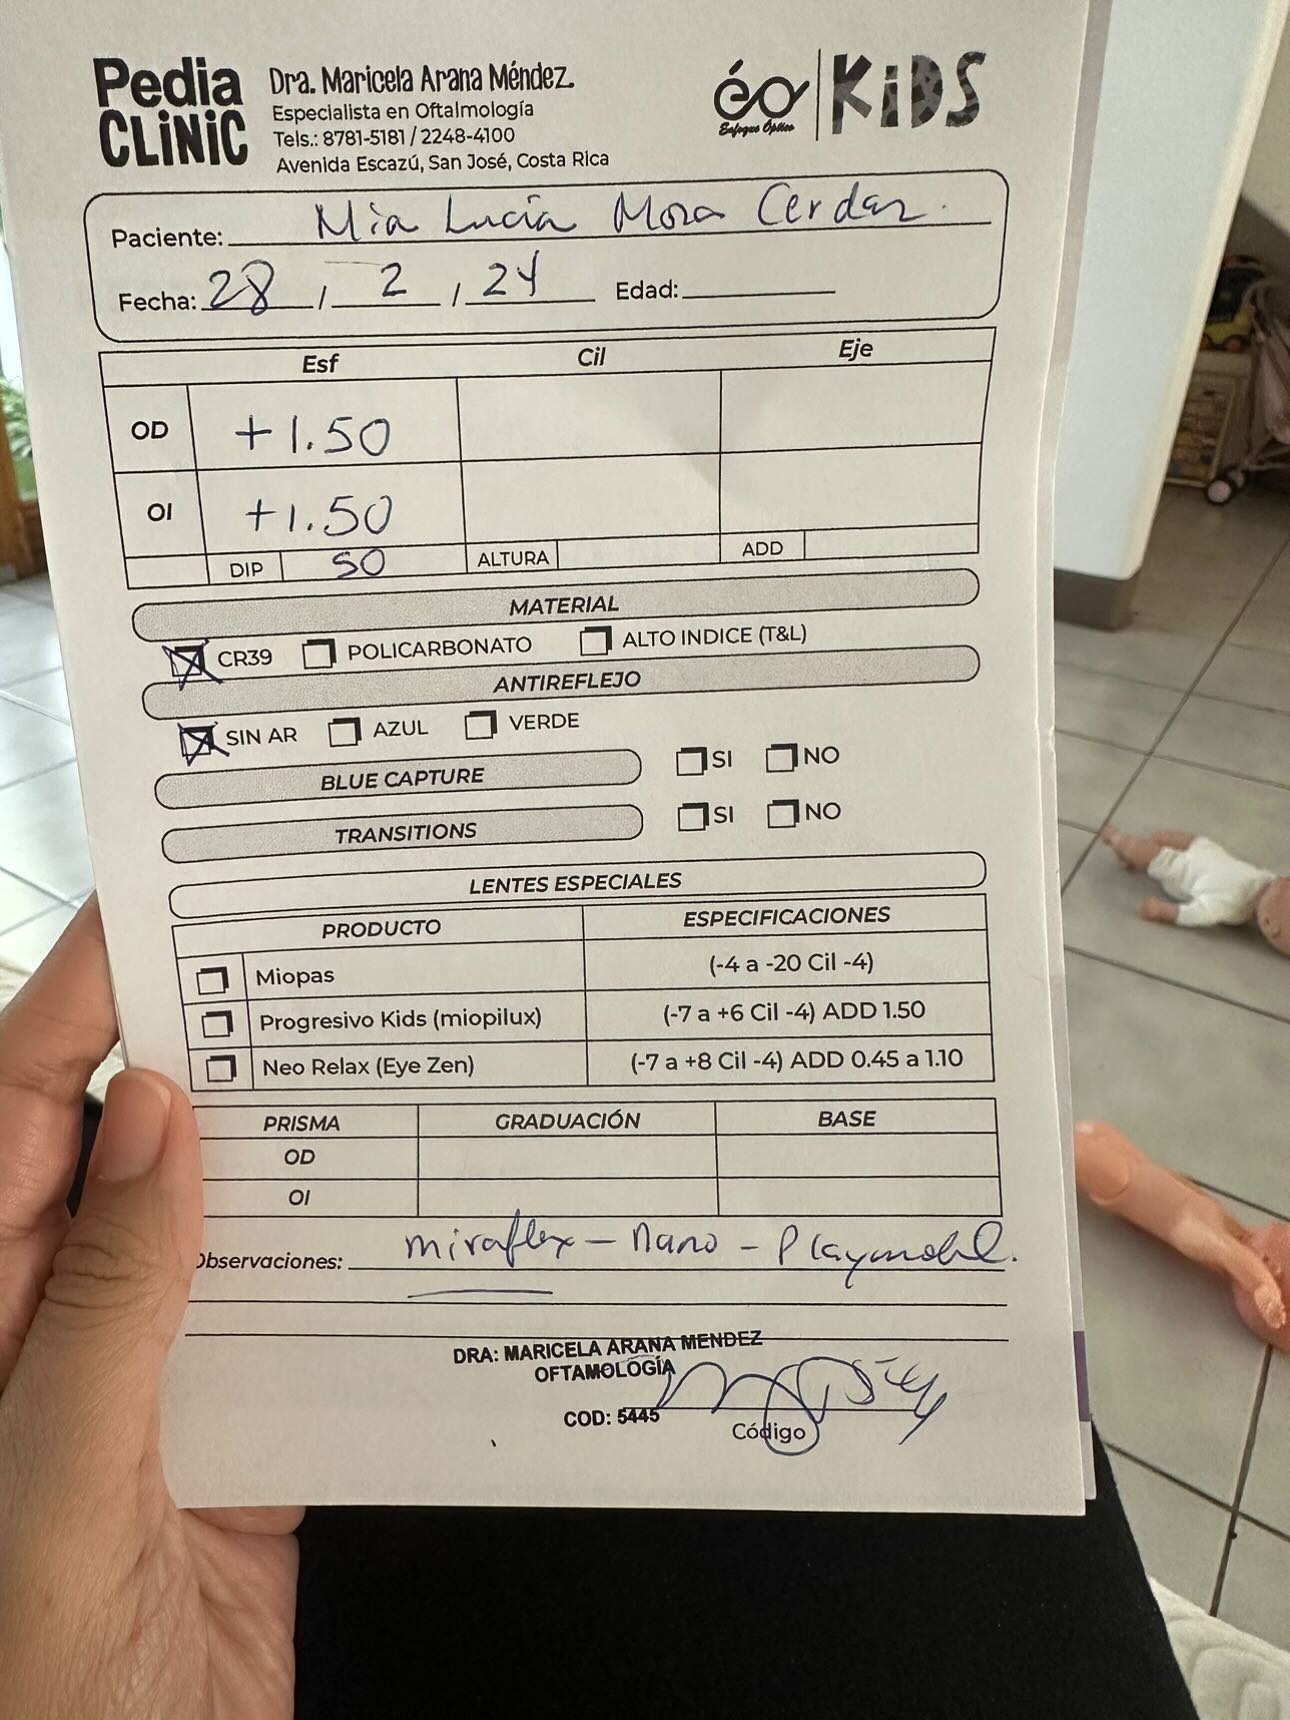 Pedia CLiNiC
Dra. Maricela Arana Méndez
Especialista en Oftalmología
Tels.: 8781-5181 / 2248-4100
Avenida Escazú, San José, Costa Rica
éo KiDS
Enfoque Óptico
Paciente: Mia Lucía Mora Cerdas
Fecha: 28 / 2 / 24 Edad:
Esf Cil Eje
OD +1.50
OI +1.50
DIP 50 ALTURA ADD
MATERIAL
CR39 POLICARBONATO ALTO INDICE (T&L)
ANTIREFLEJO
SIN AR AZUL VERDE
BLUE CAPTURE SI NO
TRANSITIONS SI NO
LENTES ESPECIALES
PRODUCTO ESPECIFICACIONES
Miopas (-4 a -20 Cil -4)
Progresivo Kids (miopilux) (-7 a +6 Cil -4) ADD 1.50
Neo Relax (Eye Zen) (-7 a +8 Cil -4) ADD 0.45 a 1.10
PRISMA GRADUACIÓN BASE
OD
OI
Observaciones: miraflex - nano - Playmobil.
DRA: MARICELA ARANA MENDEZ
OFTAMOLOGÍA
COD: 5445
Código